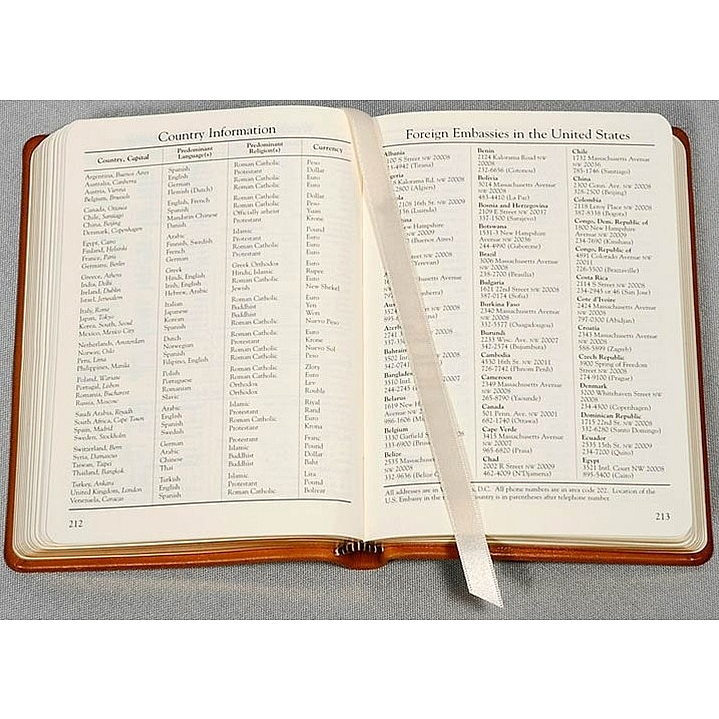 Country Information
Country, Capital Predominant Language(s) Predominant Religion(s) Currency
Argentina, Buenos Aires Spanish Roman Catholic Peso
Australia, Canberra English Protestant Dollar
Austria, Vienna German Roman Catholic Euro
Belgium, Brussels Flemish (Dutch) Roman Catholic Euro
Canada, Ottawa English, French Roman Catholic Dollar
Chile, Santiago Spanish Roman Catholic Peso
China, Beijing Mandarin Chinese Officially atheist Yuan
Denmark, Copenhagen Danish Protestant Krone
Egypt, Cairo Arabic Islamic Pound
Finland, Helsinki Finnish, Swedish Protestant Euro
France, Paris French Roman Catholic Euro
Germany, Berlin German Protestant Euro
Greece, Athens Greek Greek Orthodox Euro
India, Delhi Hindi, English Hindu, Islamic Rupee
Ireland, Dublin Irish, English Roman Catholic Euro
Israel, Jerusalem Hebrew, Arabic Jewish New Shekel
Italy, Rome Italian Roman Catholic Euro
Japan, Tokyo Japanese Buddhist Yen
Korea, South, Seoul Korean Buddhist Won
Mexico, Mexico City Spanish Roman Catholic Nuevo Peso
Netherlands, Amsterdam Dutch Roman Catholic Euro
Norway, Oslo Norwegian Protestant Krone
Peru, Lima Spanish Roman Catholic Nuevo Sol
Philippines, Manila Filipino, English Roman Catholic Peso
Poland, Warsaw Polish Roman Catholic Zloty
Portugal, Lisbon Portuguese Roman Catholic Euro
Romania, Bucharest Romanian Orthodox Lev
Russia, Moscow Slavic Orthodox Rouble
Saudi Arabia, Riyadh Arabic Islamic Riyal
South Africa, Cape Town English Protestant Rand
Spain, Madrid Spanish Roman Catholic Euro
Sweden, Stockholm Swedish Protestant Krona
Switzerland, Bern German Protestant Franc
Syria, Damascus Arabic Islamic Pound
Taiwan, Taipei Chinese Buddhist Dollar
Thailand, Bangkok Thai Buddhist Baht
Turkey, Ankara Turkish Islamic Lira
United Kingdom, London English Protestant Pound
Venezuela, Caracas Spanish Roman Catholic Bolivar
212
Foreign Embassies in the United States
Albania
S Street NW 20008
(Tirana)
Kalorama Rd. NW
(Algiers)
16th St. NW
(Luanda)
New Hampshire
(Buenos Aires)
(Yerevan)
Massachusetts
(Canberra)
Bahrain
3502 Int.
Bangladesh
3510 Int.
Belarus
1619 New
Avenue NW
Belgium
3330 Garfield S
Belize
2535 Massachusetts
NW 20008
332-9636 (Belize
Benin
2124 Kalorama Road NW
20008
232-6656 (Cotonou)
Bolivia
3014 Massachusetts Avenue
NW 20008
483-4410 (La Paz)
Bosnia and Herzegovina
2109 E Street NW 20037
337-1500 (Sarajevo)
Botswana
1531-3 New Hampshire
Avenue NW 20036
244-4990 (Gaborone)
Brazil
3006 Massachusetts Avenue
NW 20008
238-2700 (Brasilia)
Bulgaria
1621 22nd Street NW 20008
387-0174 (Sofia)
Burkina Faso
2340 Massachusetts Avenue
NW 20008
332-5577 (Ouagadougou)
Burundi
2233 Wisc. Ave. NW 20007
342-2574 (Bujumbura)
Cambodia
4530 16th St. NW 20011
726-7742 (Phnom Penh)
Cameroon
2349 Massachusetts Avenue
NW 20008
265-8790 (Yaounde)
Canada
501 Penn. Ave. NW 20001
682-1740 (Ottawa)
Cape Verde
3415 Massachusetts Avenue
NW 20007
965-6820 (Praia)
Chad
2002 R Street NW 20009
462-4009 (N'Djamena)
Chile
1732 Massachusetts Avenue
NW 20036
785-1746 (Santiago)
China
2300 Conn. Ave. NW 20008
328-2500 (Beijing)
Colombia
2118 Leroy Place NW 20008
387-8338 (Bogota)
Congo, Dem. Republic of
1800 New Hampshire
Avenue NW 20009
234-7690 (Kinshasa)
Congo, Republic of
4891 Colorado Avenue NW
20011
726-5500 (Brazzaville)
Costa Rica
2114 S Street NW 20008
234-2945 or 46 (San Jose)
Cote d'Ivoire
2424 Massachusetts Avenue
NW 20008
797-0300 (Abidjan)
Croatia
2343 Massachusetts Avenue
NW 20008
588-5899 (Zagreb)
Czech Republic
3900 Spring of Freedom
Street NW 20008
274-9100 (Prague)
Denmark
3200 Whitehaven Street NW
20008
234-4300 (Copenhagen)
Dominican Republic
1715 22nd St. NW 20008
332-6280 (Santo Domingo)
Ecuador
2535 15th St. NW 20009
234-7200 (Quito)
Egypt
3521 Intl. Court NW 20008
895-5400 (Cairo)
All addresses are in D.C. All phone numbers are in area code 202. Location of the
U.S. Embassy in the country is in parentheses after telephone number.
213